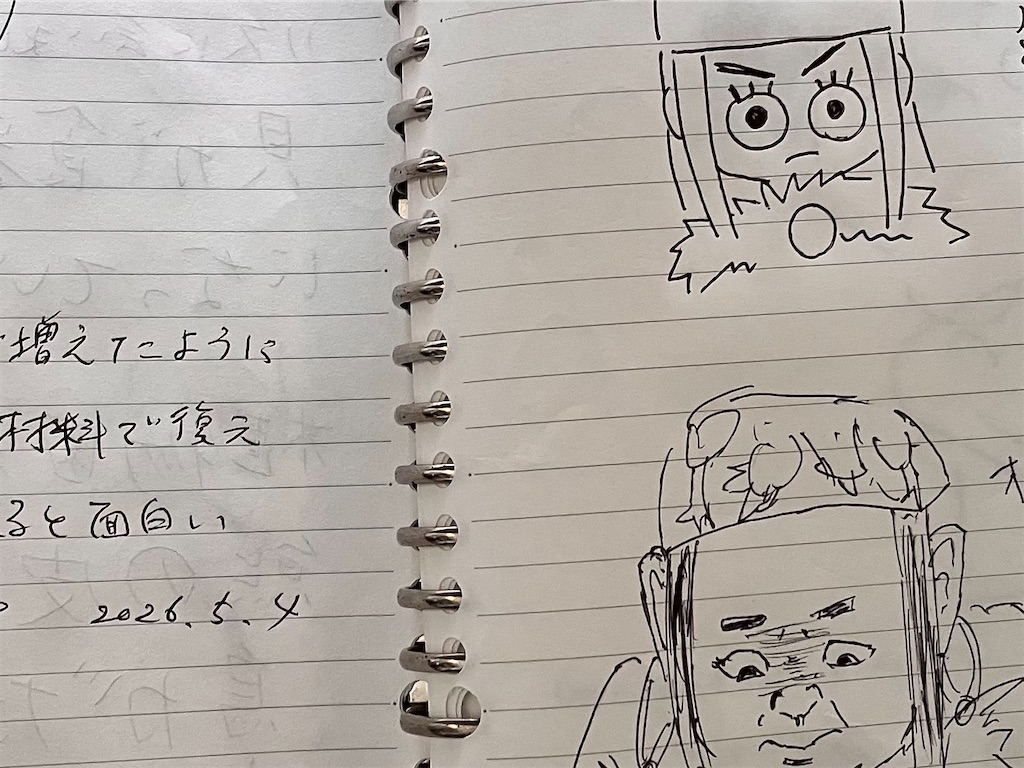 増えてこように
材料で復元
ると面白い
2026.5.4
オ